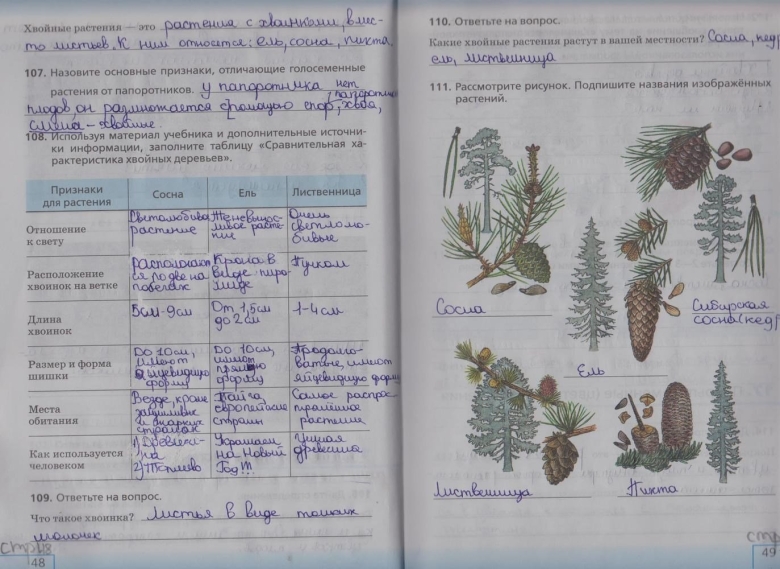 Хвойные растения — это растения с хвоинками, вмес-
то листьев. К ним относится: ель, сосна, пихта.
107. Назовите основные признаки, отличающие голосеменные
растения от папоротников. у папоротника нет
плодов он размножается с помощью спор, хвоя,
семена - хвойные.
108. Используя материал учебника и дополнительные источни-
ки информации, заполните таблицу «Сравнительная ха-
рактеристика хвойных деревьев».
Признаки для растения Сосна Ель Лиственница
Отношение к свету Светолюбивое растение Теневынос-ливое расте-ние Очень светлолю-бивые
Расположение хвоинок на ветке Располагают-ся по две на побегах Крона в виде пира-миде Пучком
Длина хвоинок 5см-9см От 1,5см до 2см 1-4см
Размер и форма шишки До 10см, имеют яйцевидную форму До 10см, имеют прямую форму Продолго-ватые, имеют яйцевидную форму
Места обитания Везде, кроме и жарких странах Тайга, европейские страны Самое распрос-
растение
Как используется человеком 1) Древеси-на 2) Топливо Украшаем на Новый Год!!! Ценная древесина
109. Ответьте на вопрос.
Что такое хвоинка? Листья в виде тонких
иголочек
стр48
48
110. Ответьте на вопрос.
Какие хвойные растения растут в вашей местности? Сосна, кедр
ель, лиственница
111. Рассмотрите рисунок. Подпишите названия изображённых
растений.
Сосна
Сибирская
сосна(кедр
Ель
Лиственница
Пихта
стр
49